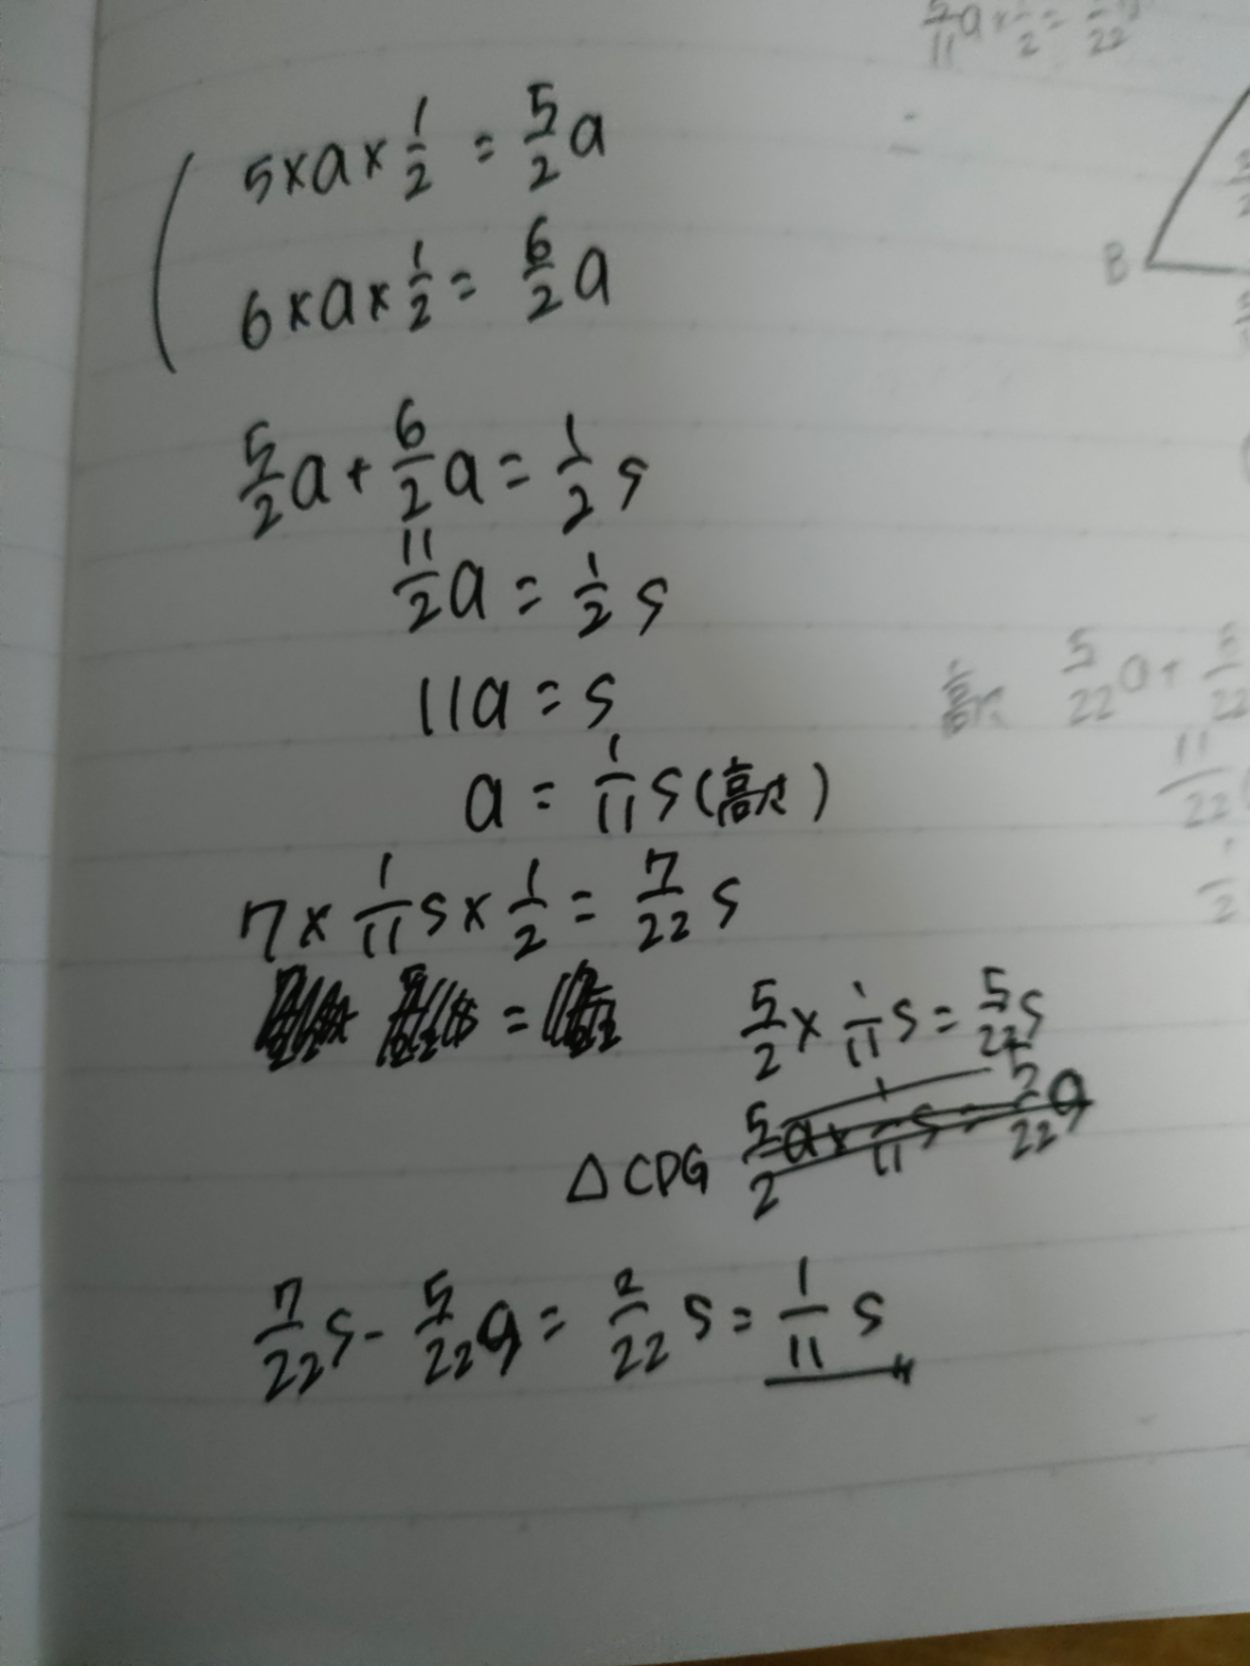 5/11 a × 1/2 =
5×a×1/2 = 5/2 a
6×a×1/2 = 6/2 a
B
5/2 a + 6/2 a = 1/2 s
11/2 a = 1/2 s
11a = s
高さ 5/22 a +
11/22
a = 1/11 s (高さ)
1/2
7 × 1/11 s × 1/2 = 7/22 s
5/2 × 1/11 s = 5/22 s
△CDG 5/2 a × 1/11 s = 5/22 a
7/22 s - 5/22 a = 2/22 s = 1/11 s